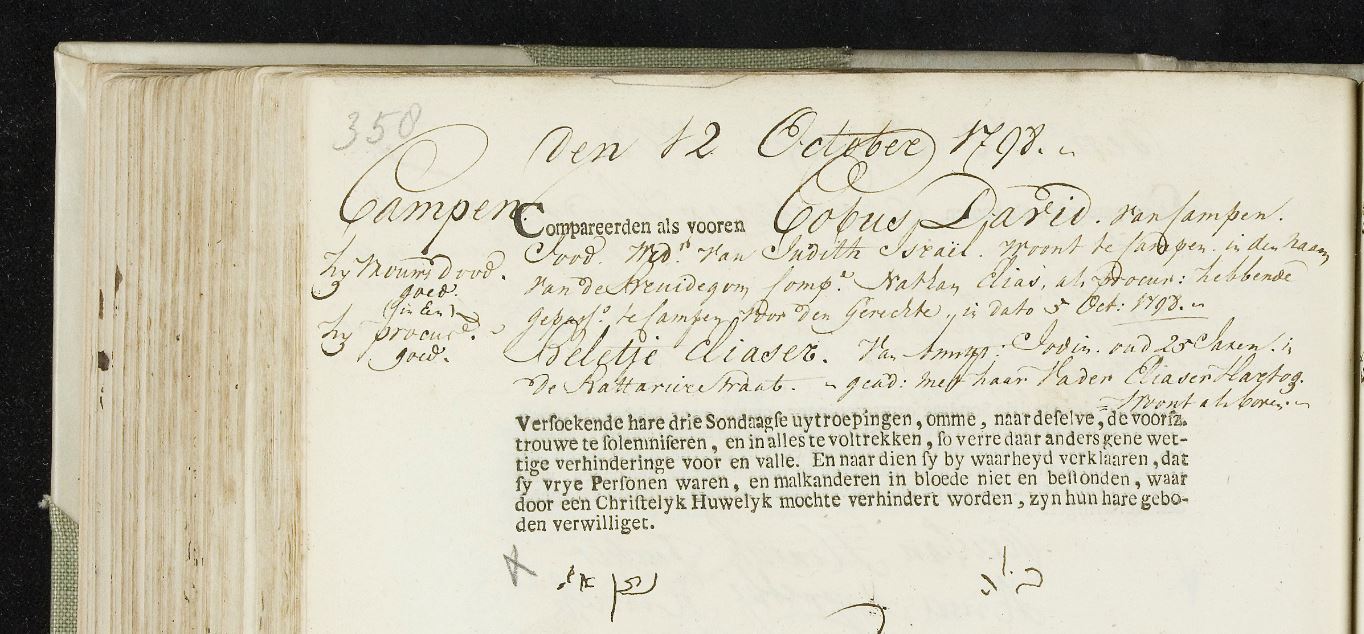 358
den 12 October 1798.
Campen
Compareerden als vooren Cobus David. van Campen.
hy vrouws dood.
goed.
Jood. Wed.r van Judith Israël. woont te Campen. in den Naam
van de Bruidegom Comp.t Nathan Elias, als procur: hebbende
hy procur.
goed.
gepass.t te Campen voor den Gerechte, in dato 5 Oct: 1798.
Beletje Eliaser. van Amst: Jodin. oud 25 Jaren. in
de Batt straat. gead: met haar Vader Eliaser Hartog.
woont als boven.
Versoekende hare drie Sondaagse uytroepingen, omme, naar deselve, de voorsz.
trouwe te solemniseren, en in alles te voltrekken, so verre daar anders gene wet-
tige verhinderinge voor en valle. En naar dien sy by waarheyd verklaaren, dat
sy vrye Personen waren, en malkanderen in bloede niet en bestonden, waar
door een Christelyk Huwelyk mochte verhindert worden, zyn hun hare gebo-
den verwilliget.